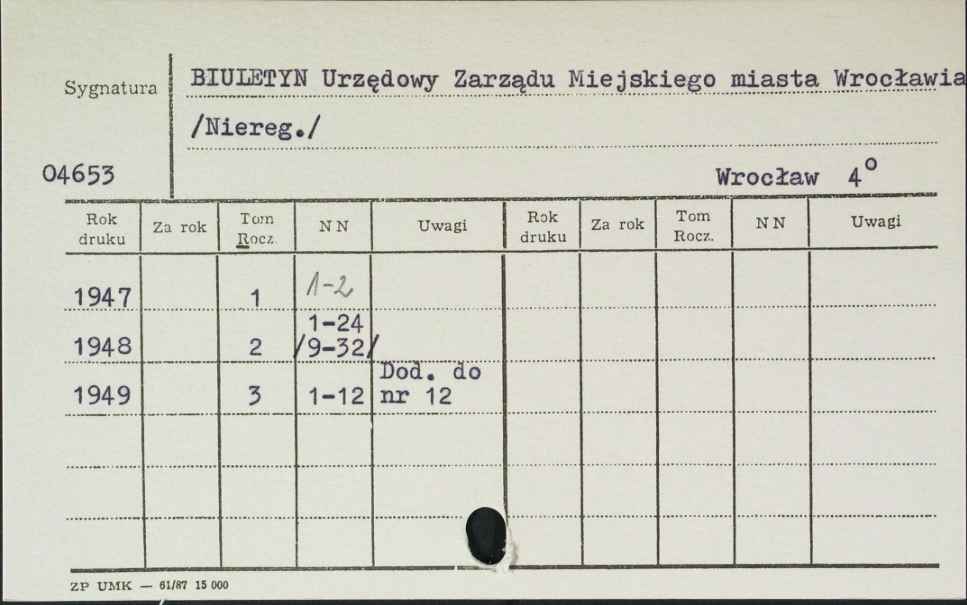 Sygnatura BIULETYN Urzędowy Zarządu Miejskiego miasta Wrocławia
/Niereg./
04653 Wrocław 4°
Rok druku Za rok Tom Rocz. NN Uwagi Rok druku Za rok Tom Rocz. NN Uwagi
1947 1 1-2
1948 2 1-24 /9-32/
1949 3 1-12 Dod. do nr 12
ZP UMK — 61/87 15 000